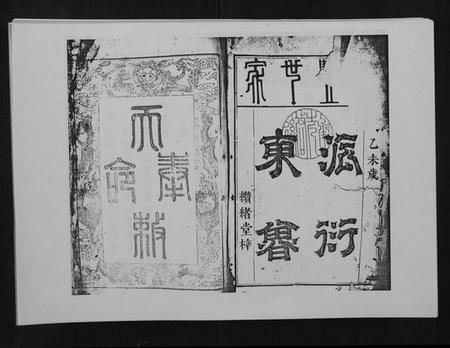 世家
乙未歲
派衍
東魯
纘緒堂梓
奉天敕命